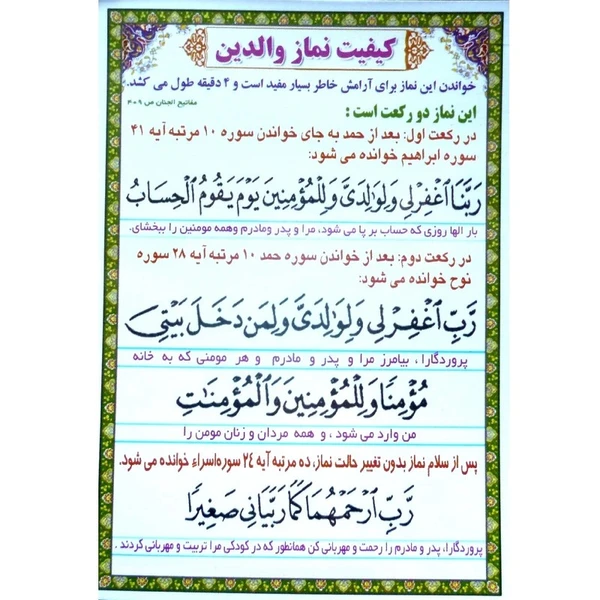 کیفیت نماز والدین
خواندن این نماز برای آرامش خاطر بسیار مفید است و ۴ دقیقه طول می کشد.
مفاتیح الجنان ص ۴۰۹
این نماز دو رکعت است :
در رکعت اول: بعد از حمد به جای خواندن سوره ۱۰ مرتبه آیه ۴۱
سوره ابراهیم خوانده می شود:
رَبَّنَا ٱغْفِرْ لِي وَلِوَٰلِدَيَّ وَلِلْمُؤْمِنِينَ يَوْمَ يَقُومُ ٱلْحِسَابُ
بار الها روزی که حساب بر پا می شود، مرا و پدر ومادرم وهمه مومنین را ببخشای.
در رکعت دوم: بعد از خواندن سوره حمد ۱۰ مرتبه آیه ۲۸ سوره
نوح خوانده می شود:
رَبِّ ٱغْفِرْ لِي وَلِوَٰلِدَيَّ وَلِمَن دَخَلَ بَيْتِيَ
پروردگارا، بیامرز مرا و پدر و مادرم و هر مومنی که به خانه
مُؤْمِنًا وَلِلْمُؤْمِنِينَ وَٱلْمُؤْمِنَٰتِ
من وارد می شود ، و همه مردان و زنان مومن را
پس از سلام نماز بدون تغییر حالت نماز، ده مرتبه آیه ۲۴ سوره اسراء خوانده می شود.
رَبِّ ٱرْحَمْهُمَا كَمَا رَبَّيَانِي صَغِيرًا
پروردگارا، پدر و مادرم را رحمت و مهربانی کن همانطور که در کودکی مرا تربیت و مهربانی کردند .